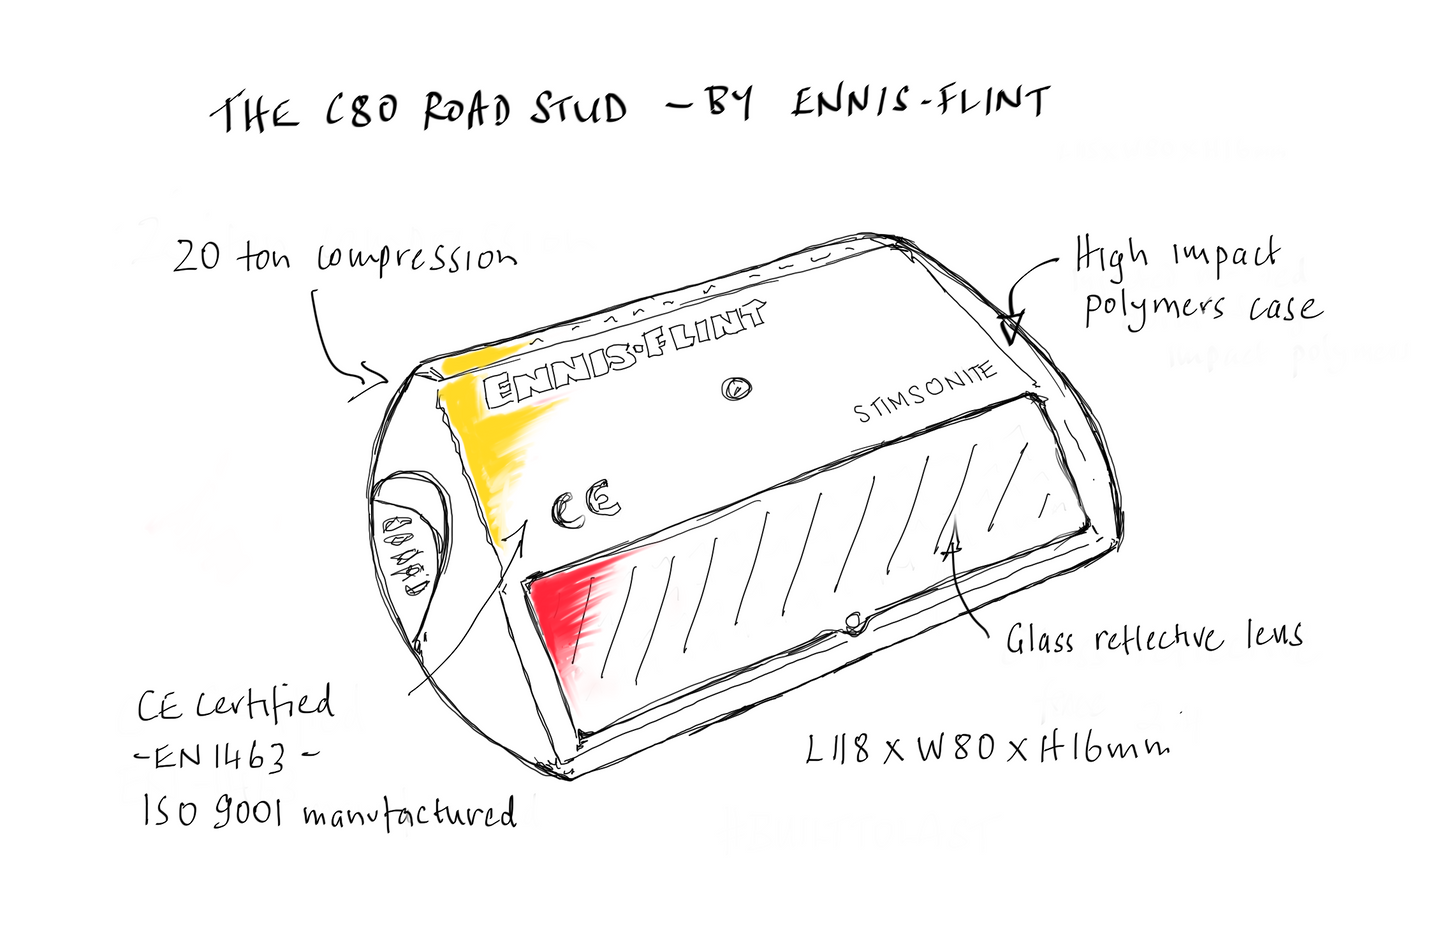 THE C80 ROAD STUD - BY ENNIS-FLINT
20 ton compression
High impact
polymers case
ENNIS·FLINT
STIMSONITE
CE
Glass reflective lens
CE certified
-EN1463-
ISO 9001 manufactured
L118 x W80 x H16mm